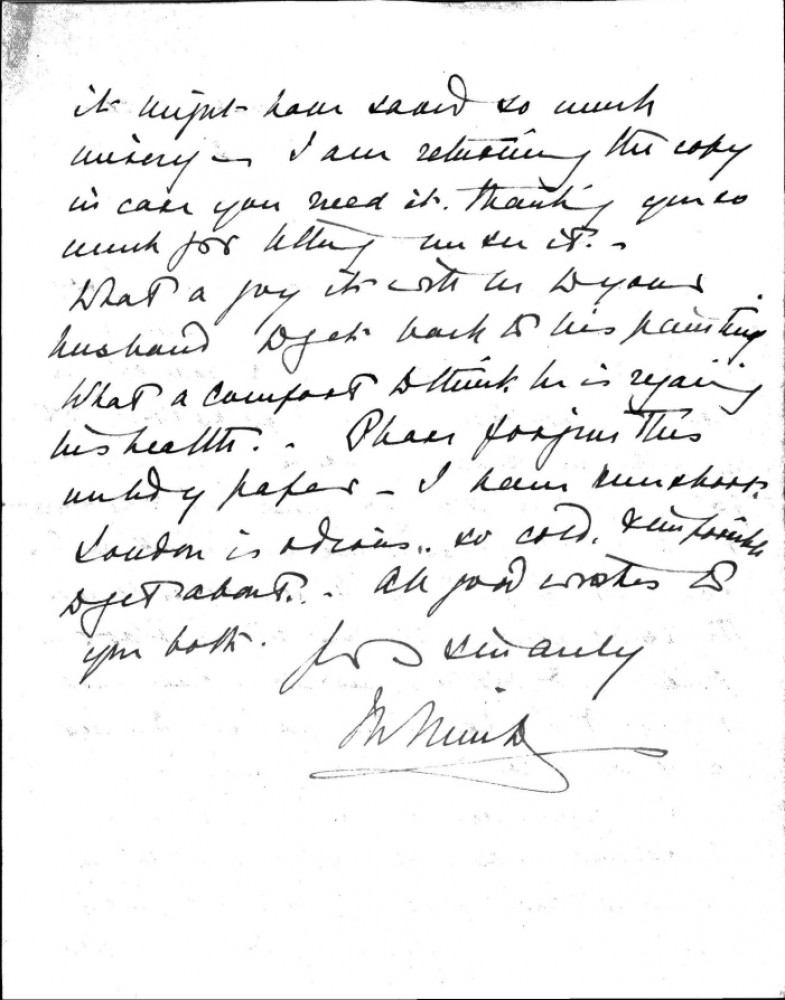 it might have saved so much
misery – I am returning the copy
in case you need it. Thanking you so
much for letting me see it. –
What a joy it will be to your
husband to get back to his painting
What a comfort to think he is regaining
his health. – Please forgive this
untidy paper – I have run short.
London is odious.. so cold. & impossible
to get about. . – All good wishes to
you both.
Yrs sincerely